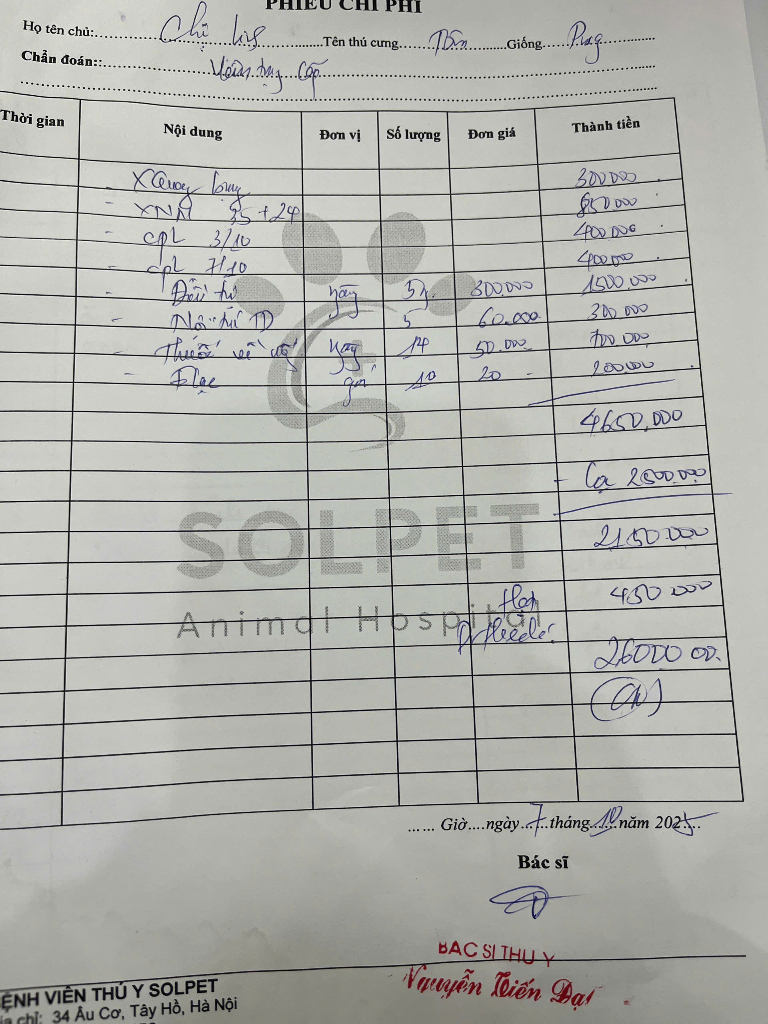 PHIẾU CHI PHÍ
Họ tên chủ: Chị Tên thú cưng Giống Pug
Chẩn đoán:: Viêm tụy cấp
Thời gian Nội dung Đơn vị Số lượng Đơn giá Thành tiền
- XQuang bụng 300 000
- XNM 35 + 24 850 000
- cPL 3/10 400 000
- cPL 7/10 400 000
- Điều trị ngày 5 300.000 1500 000
- Nội trú TĐ 5 60.000 300 000
- Thuốc về uống ngày 14 50.000 700 000
- gói 10 20 - 200 000
4650,000
- Cọc 2500.000
2150 000
SOLPET
Animal Hospital
450 000
2600 000.
CK
...... Giờ....ngày 7 tháng 10 năm 2025
Bác sĩ
BÁC SĨ THÚ Y
Nguyễn Tiến Đạt
BỆNH VIỆN THÚ Y SOLPET
Địa chỉ: 34 Âu Cơ, Tây Hồ, Hà Nội